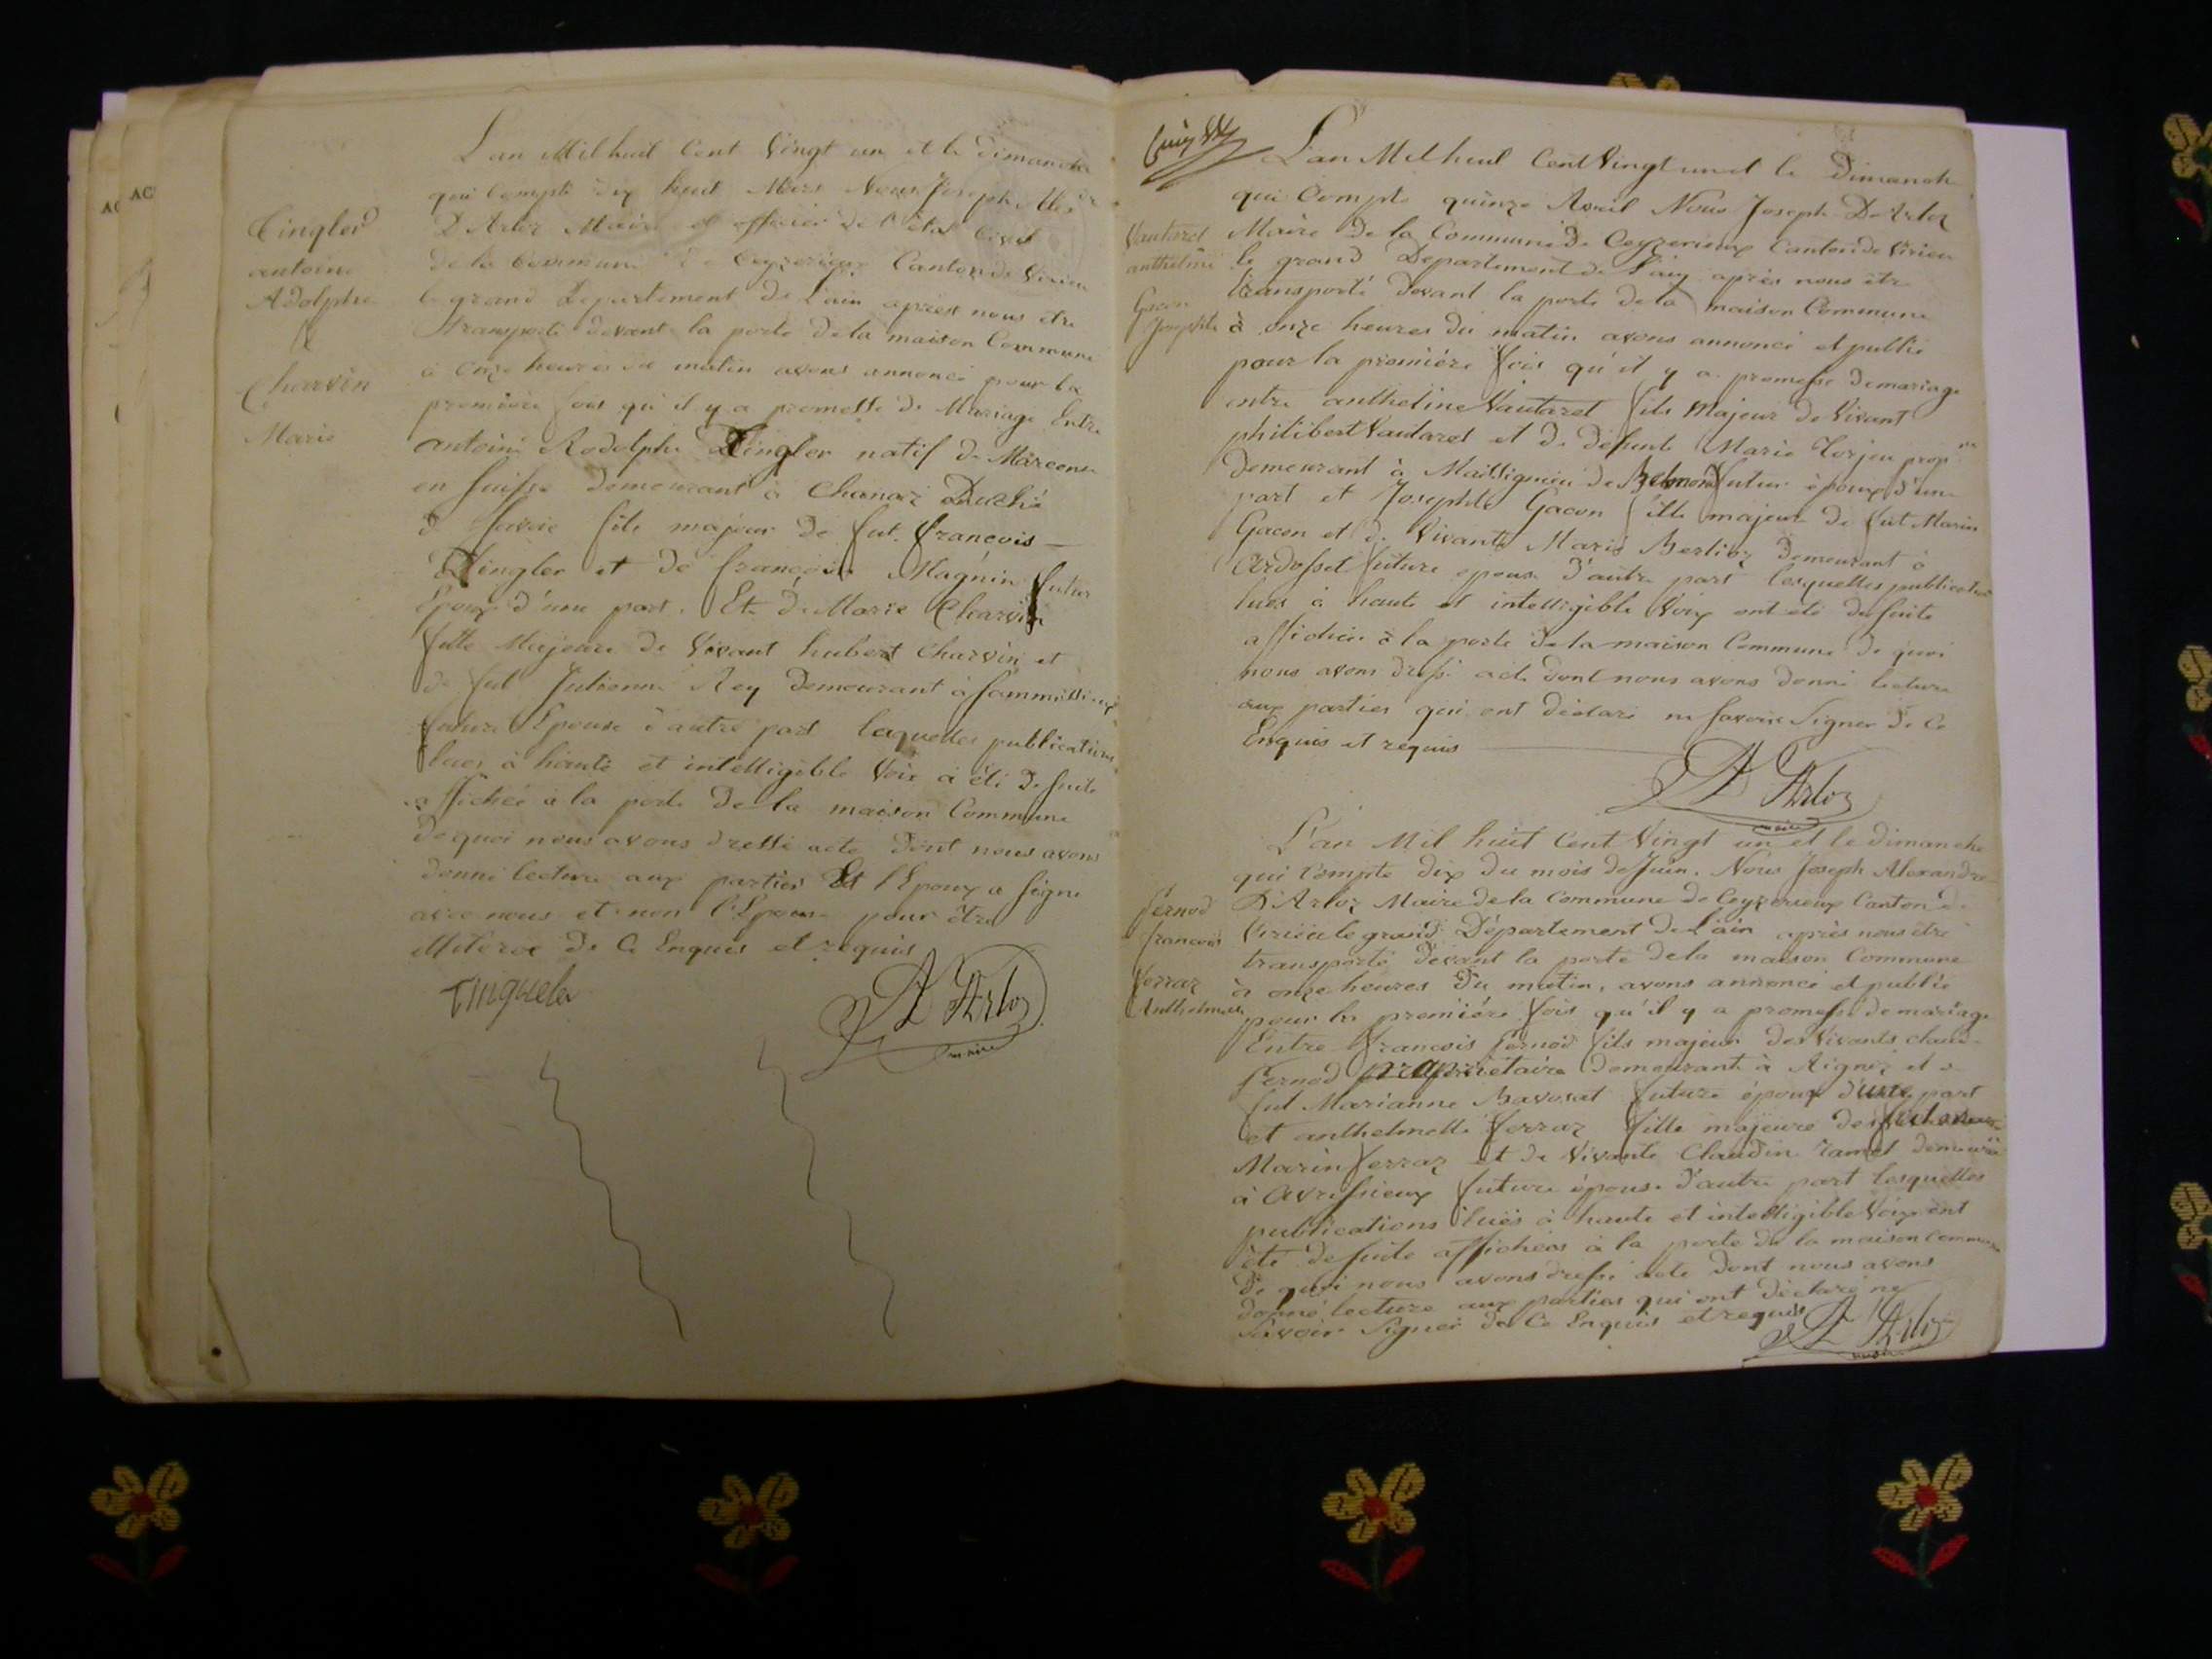 AC AC
L'an Mil huit Cent Vingt un et le dimanche
qui Compte dix huit Mars Nous Joseph Alex
D'Arloz Maire et officier de l'état Civil
de la Commune de Ceyzerieux Canton de Virieu
le grand Departement de L'ain après nous être
transporté devant la porte de la maison Commune
à onze heures du matin avons annoncé pour la
première fois qu'il y a promesse de Mariage Entre
antoine Rodolphe Tingler natif de
en Suisse demeurant à Chanaz Duché
de Savoie fils majeur de fut. françois
Tingler et de françoise Magnin futur
Epoux d'une part. Et de Marie Charvin
fille Majeure de Vivant hubert Charvin et
de fut Julienne Rey Demeurant à
future Epouse d'autre part lesquelles publications
lues à haute et intelligible Voix a été de suite
affichée à la porte De la maison Commune
De quoi nous avons dressé acte dont nous avons
donné lecture aux parties Et l'Epoux a signé
avec nous et non l'Epouse pour être
illiteree de Ce Enquis et requis
D'Arloz
maire
Tingler
antoine
Adolphe
&
Charvin
Marie
L'an Mil huit Cent Vingt un et le Dimanch
qui Compte quinze Avril Nous Joseph D'Arloz
Maire de la Commune de Ceyzerieux Canton de Virieu
le grand Departement de L'ain après nous être
transporté devant la porte de la maison Commune
à onze heures du matin avons annoncé et publié
pour la première fois qu'il y a promesse de mariage
entre anthelme Vautaret fils Majeur de Vivant
philibert Vautaret et de defunte Marie prop re
demeurant à de Belmont futur époux d'une
part et Josephte Gacon fille majeure de fut Marin
Gacon et de Vivante Marie Berlioz demeurant à
Ardosset future epouse d'autre part lesquelles publications
lues à haute et intelligible Voix ont été de suite
affichée à la porte de la maison Commune de quoi
nous avons dressé acte dont nous avons donné lecture
aux parties qui ont déclaré ne savoir Signer de Ce
Enquis et requis
D'Arloz
maire
Vautaret
anthelme
Gacon
Josephte
L'an Mil huit Cent Vingt un et le dimanche
qui Compte dix du mois de Juin. Nous Joseph Alexandre
D'Arloz Maire de la Commune de Ceyzerieux Canton de
Virieu le grand Département de L'ain après nous être
transporté devant la porte de la maison Commune
à onze heures du matin, avons annoncé et publié
pour la première fois qu'il y a promesse de mariage
Entre françois Pernod fils majeur des Vivants claude
Pernod propriétaire demeurant à Aignoz et de
fut Marianne Bavosat future époux d'une part
et anthelmette ferraz fille majeure de
Marin ferraz et de Vivante Claudine ramet
à Avrissieux future épouse d'autre part lesquelles
publications lues à haute et intelligible Voix ont
été de suite affichées à la porte de la maison Commune
De quoi nous avons dressé acte dont nous avons
donné lecture aux parties qui ont déclaré ne
savoir Signer de Ce Enquis et requis
D'Arloz
maire
Pernod
françois
ferraz
Anthelmette